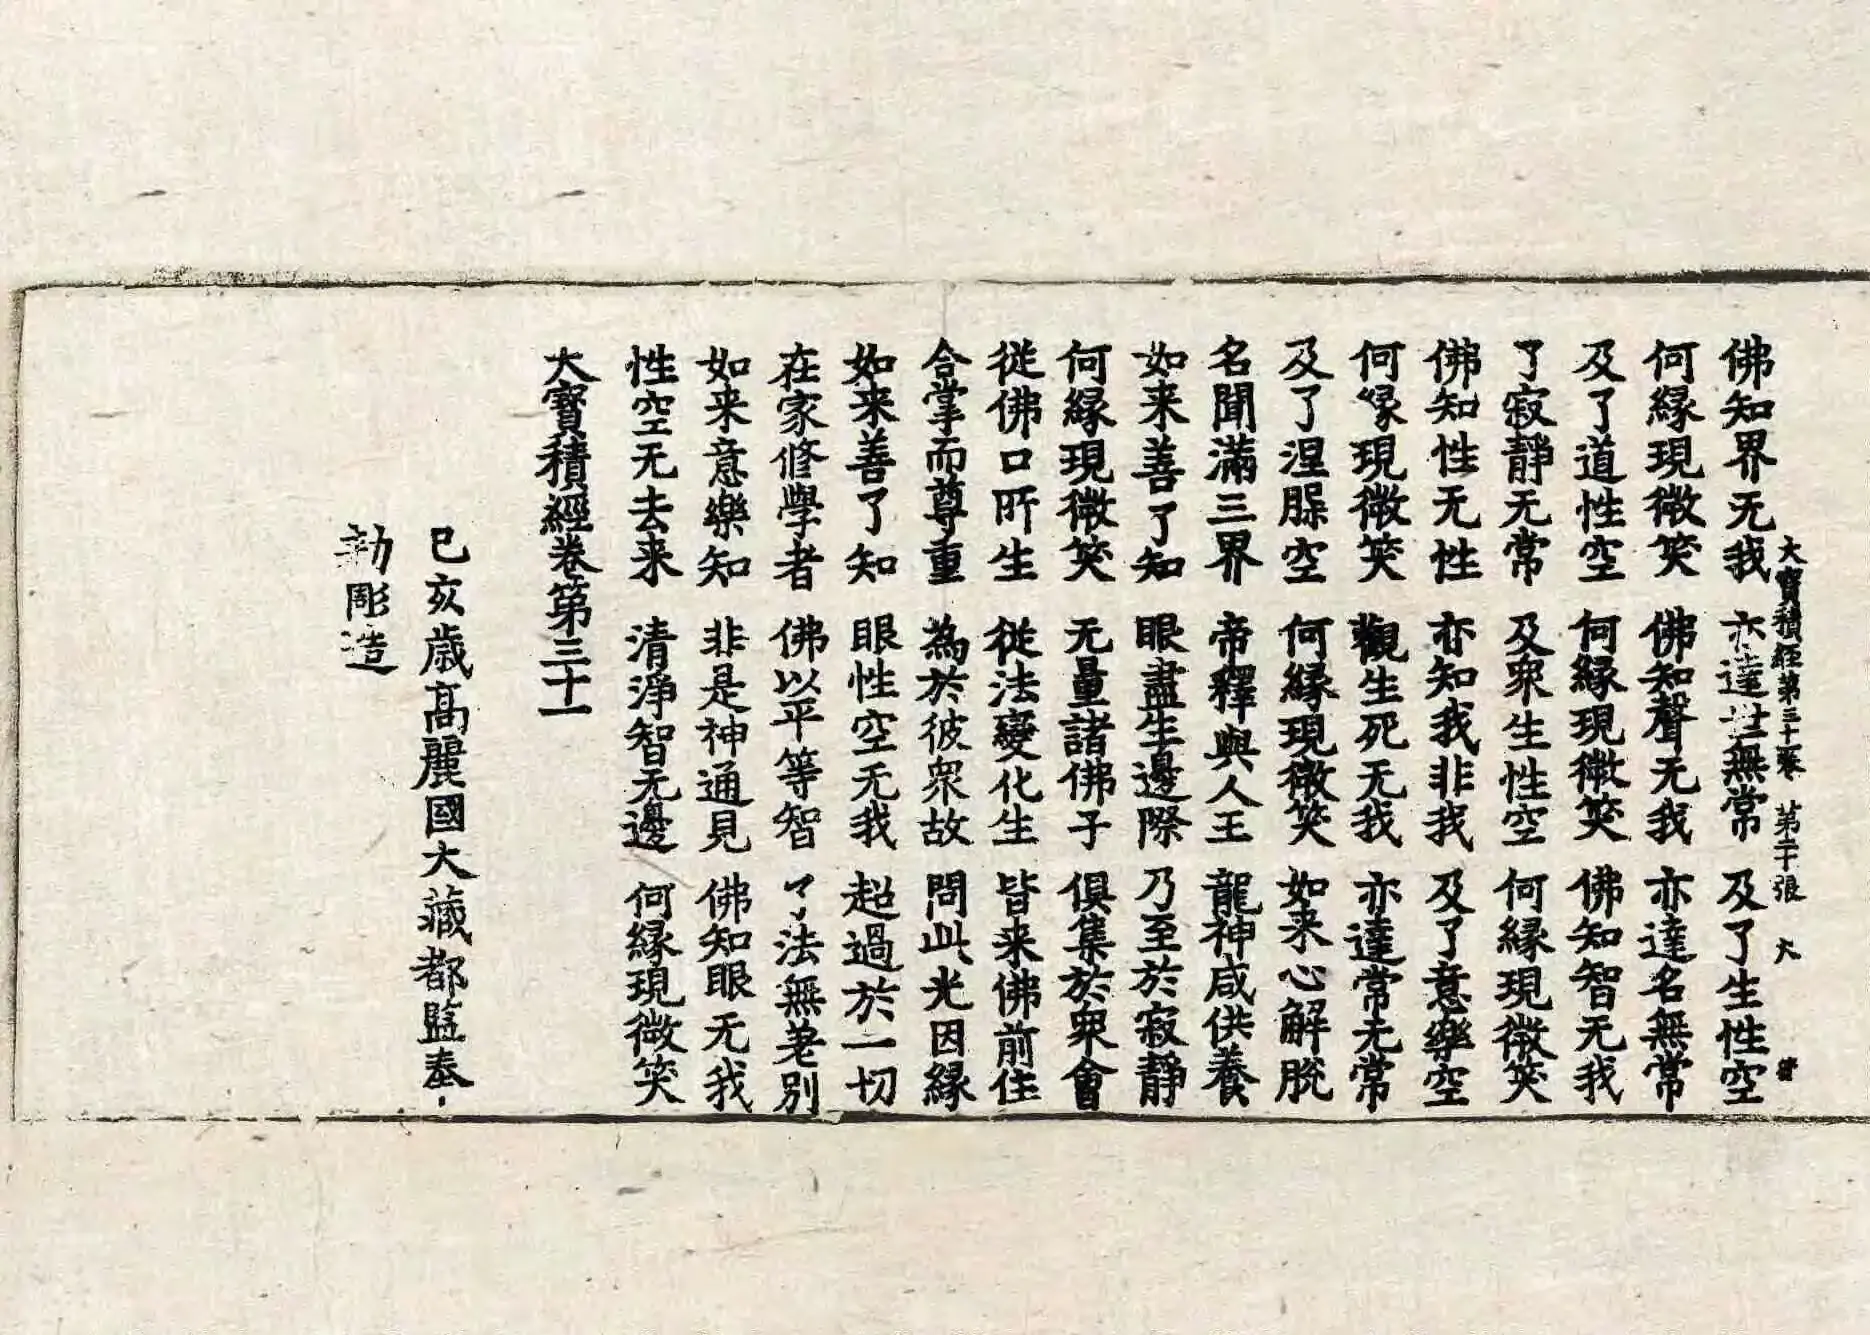 大寶積經第三十一卷 第二十張 大
佛知界无我 亦達世無常 及了生性空
何緣現微笑 佛知聲无我 亦達名無常
及了道性空 何緣現微笑 佛知智无我
了寂靜无常 及眾生性空 何緣現微笑
佛知性无性 亦知我非我 及了意樂空
何緣現微笑 觀生死无我 亦達常无常
及了涅槃空 何緣現微笑 如来心解脫
名聞滿三界 帝釋與人王 龍神咸供養
如来善了知 眼盡生邊際 乃至於寂靜
何緣現微笑 无量諸佛子 俱集於眾會
從佛口所生 從法變化生 皆来佛前住
合掌而尊重 為於彼眾故 問此光因緣
如来善了知 眼性空无我 超過於一切
在家修學者 佛以平等智 了法無差別
如来意樂知 非是神通見 佛知眼无我
性空无去来 清淨智无邊 何緣現微笑
大寶積經卷第三十一
己亥歲高麗國大藏都監奉
勅彫造